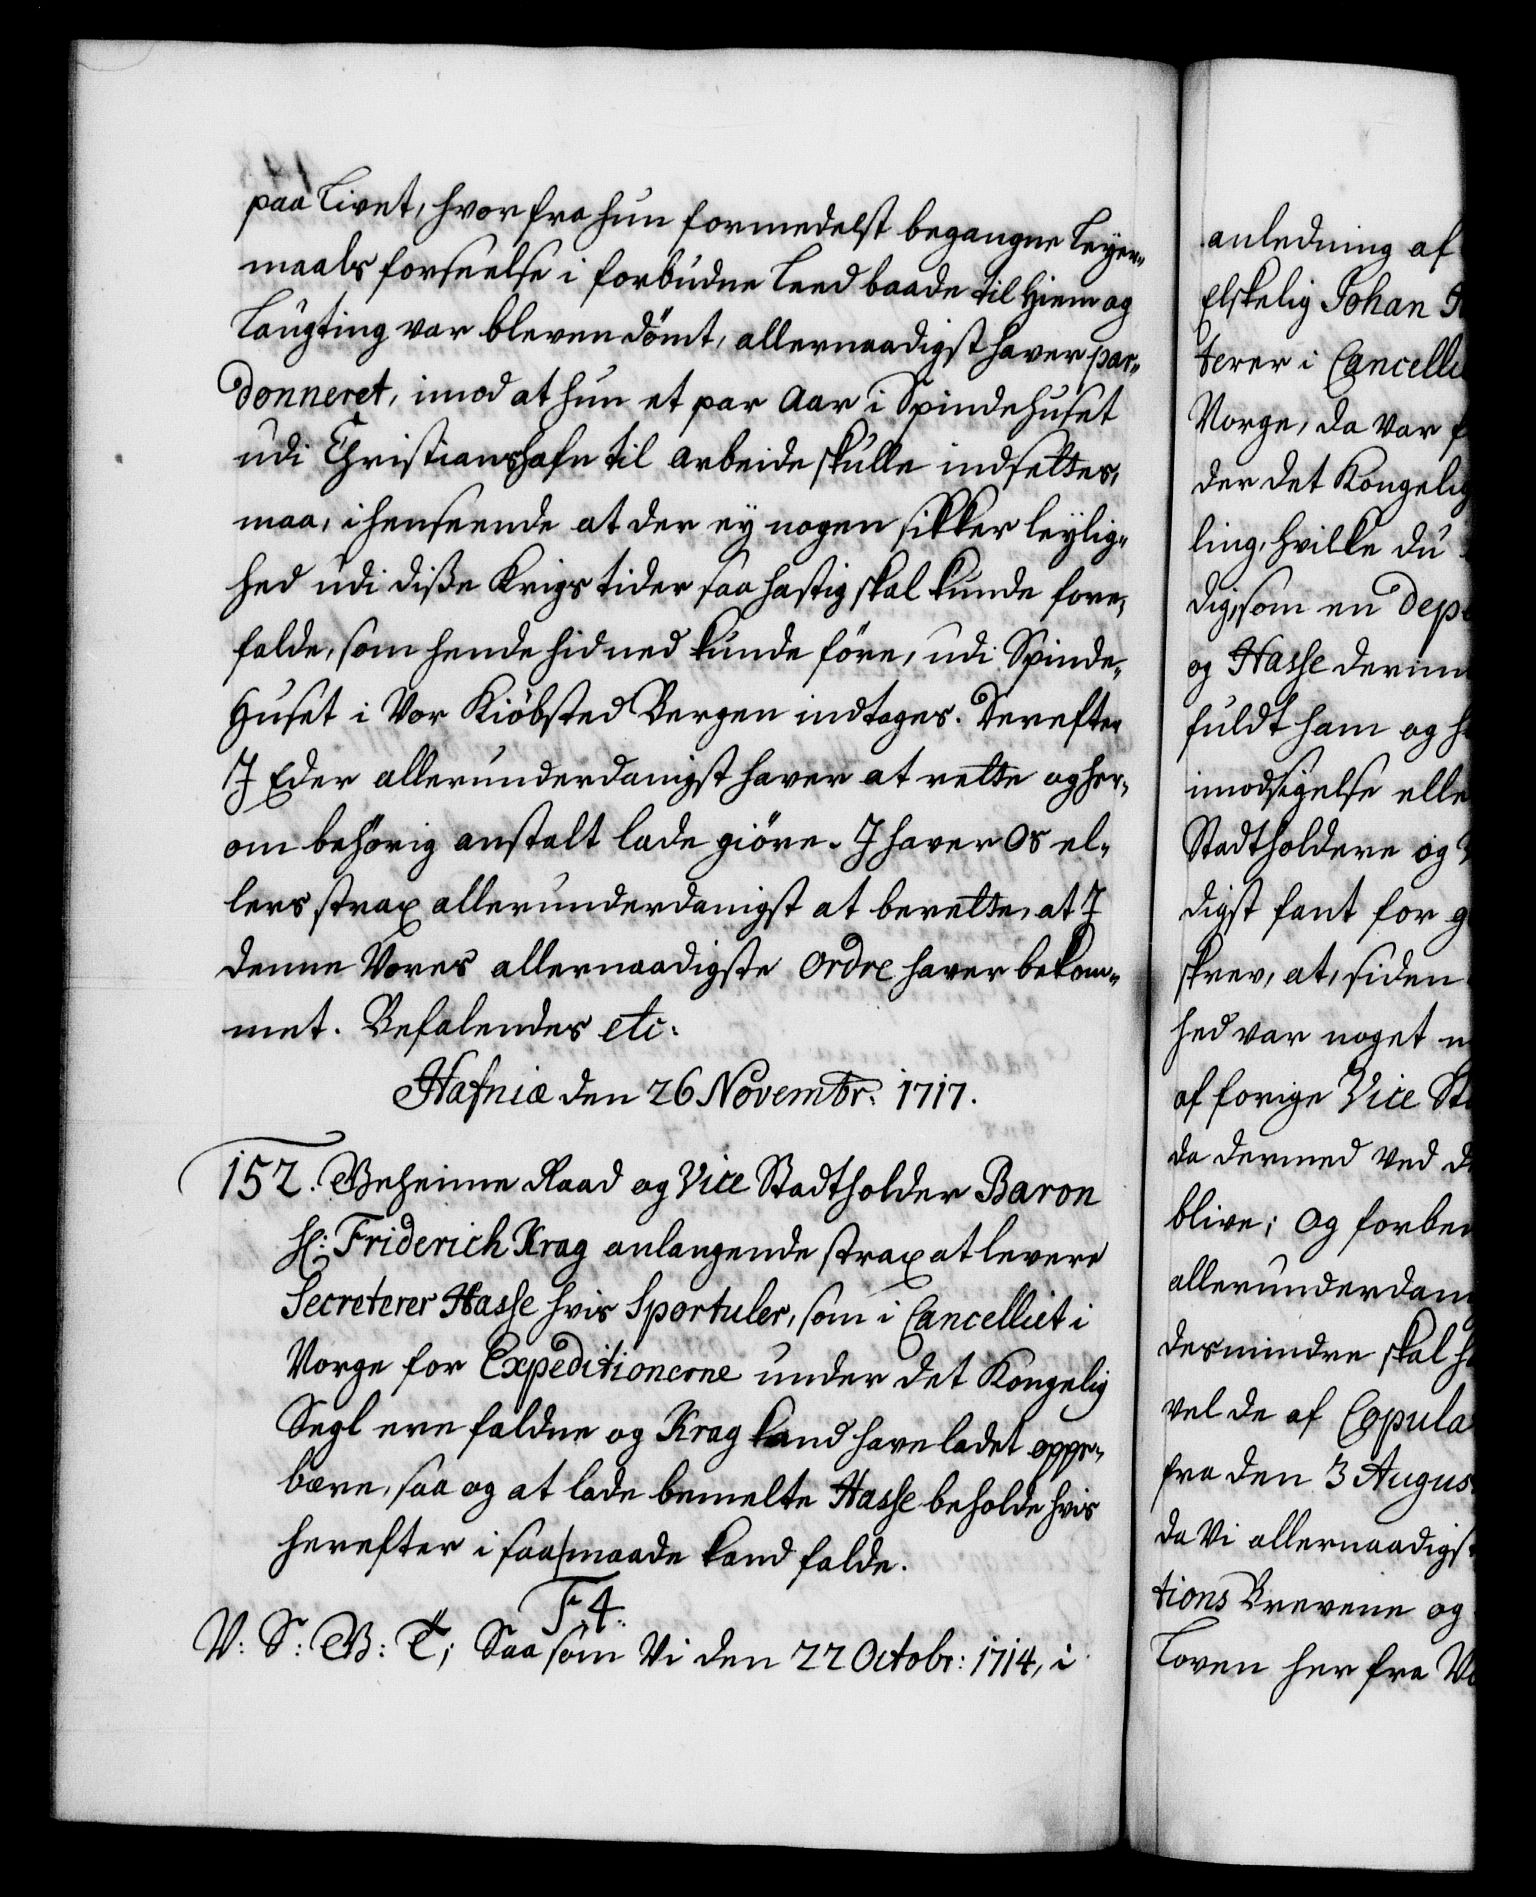 paa Livet, hvorfra hun formedelst begangne Leyer-
maals forseelse i forbudne Leed baade til Hiem og
Laugting var bleven dömt, allernaadigst haver par-
donneret, imod at hun et par Aar i Spindehuset
udi Christianshafn til arbeide skulle indsettes,
maa, i henseende at der ey nogen sikker leylig-
hed udi diße Krigs tider saa hastig skal kunde fore-
falde, som hende hid ned kunde före, udi Spinde-
Huset i Vor Kiöbsted Bergen indtages. Derefter
I Eder allerunderdanigst haver at rette og her-
om behörig anstalt lade giöre. I haver Os el-
lers strax allerunderdanigst at berette, at I
denne Vores allernaadigste Ordre haver bekom-
met. Befalendes etc:
Hafniæ den 26 Novembr: 1717.
152. Geheime Raad og Vice Stadtholder Baron
Hr: Friderich Krag anlangende strax at levere
Secreterer Hasse hvis Sportuler, som i Cancelliet i
Norge for Expeditionerne under det Kongelig
Segl ere faldne og Krag kand have ladet oppe-
bære, saa og at lade bemelte Hasse beholde hvis
herefter i saa maade kand falde.
F. 4.
V: S: G: T; Saa som Vi den 22 Octobr: 1714, i
anledning af
Elskelig Johan
terer i Cancelli
Norge, da var
der det Kongelig
ling, hvilke du
dig, som en
og Hasse
fuldt ham og
imodsigelse elle
Stadtholdere og
digst fant for
skrev, at, siden
hed var noget
af forige Vice
da dermed ved
blive; Og
allerunderdan
desmindre skal
vel de af Copula
fra den 3 Augus
da Vi allernaadigst
tions Brevene og
Loven her fra